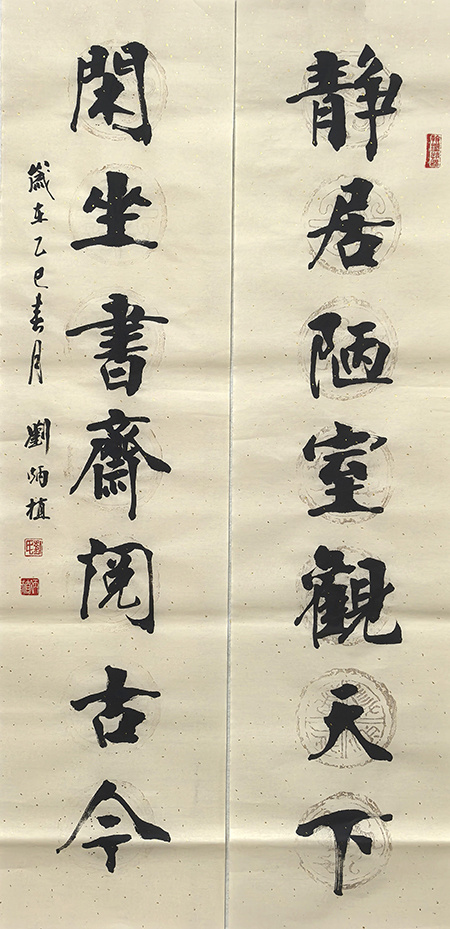 靜居陋室觀天下
閑坐書齋閱古今
歲在乙巳春月
劉炳植